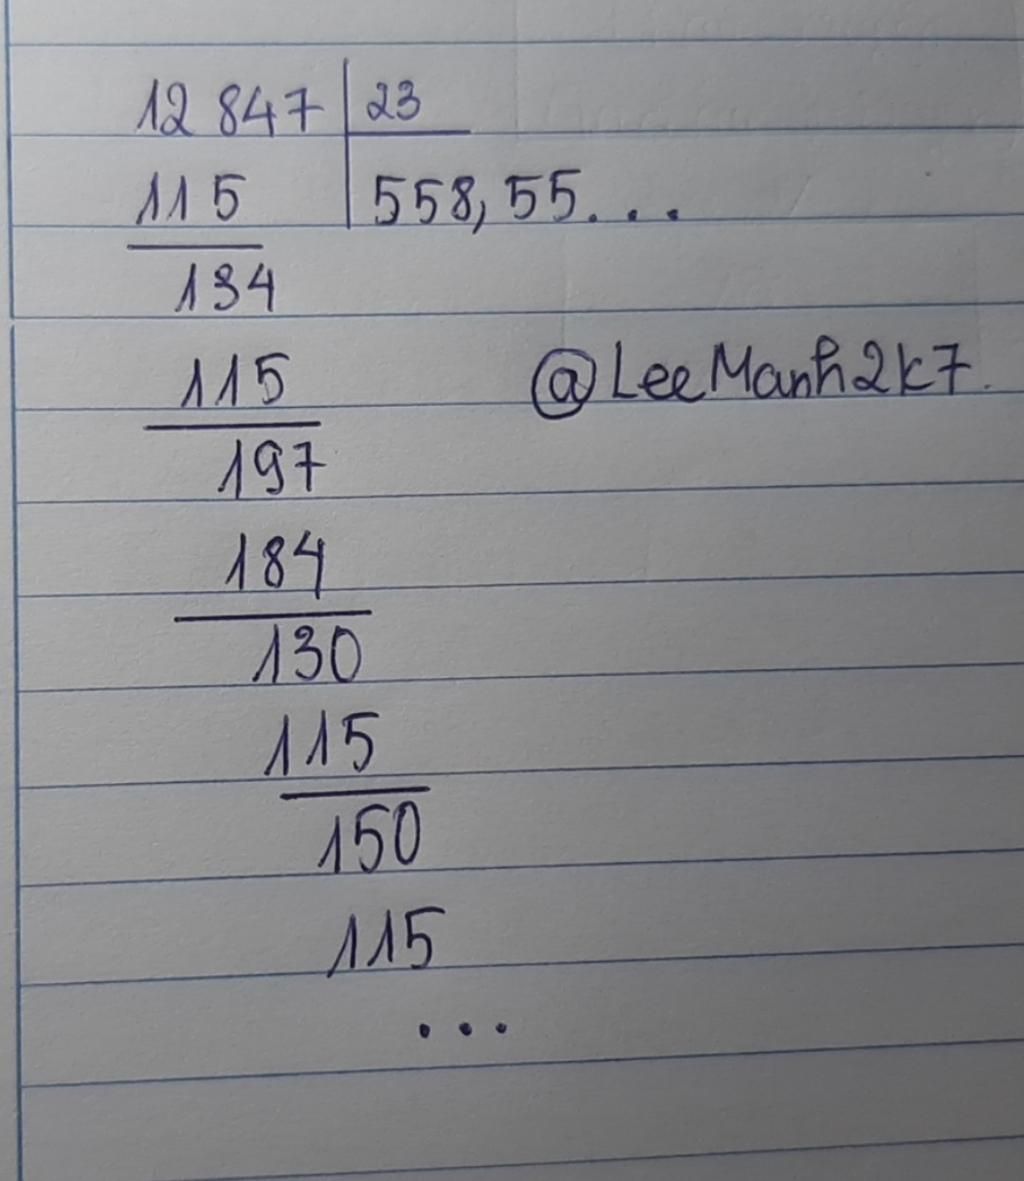 12 847 | 23
115 | 558,55...
134
115
@LeeManh2k7.
197
184
130
115
150
115
...